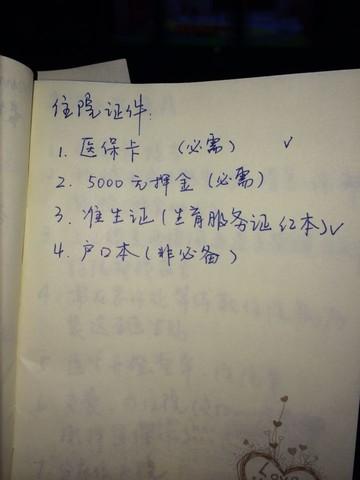 住院证件:
1. 医保卡 (必需) √
2. 5000元押金(必需)
3. 准生证(生育服务证红本)√
4. 户口本(非必备)
Love